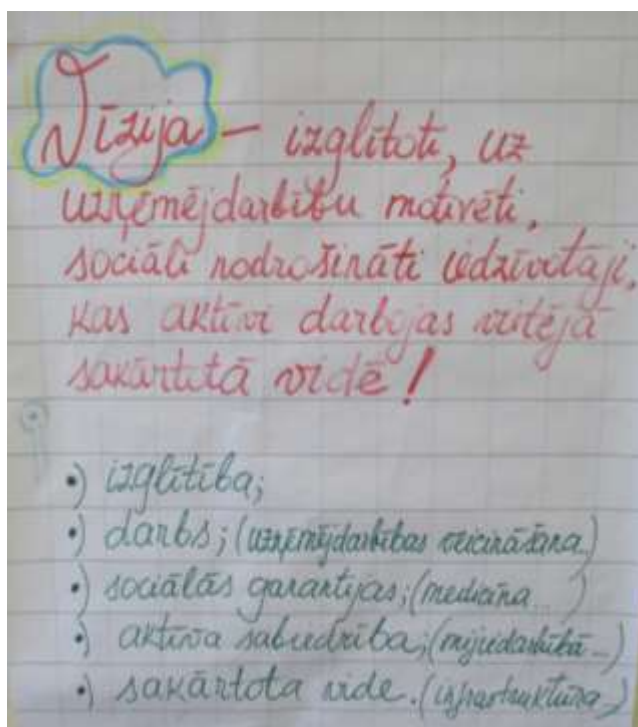 Vīzija – izglītoti, uz
uzņēmējdarbību motivēti,
sociāli nodrošināti iedzīvotāji,
kas aktīvi darbojas
sakārtotā vidē!
•) izglītība;
•) darbs; (uzņēmējdarbības veicināšana..)
•) sociālās garantijas; (medicīna...)
•) aktīva sabiedrība; (mijiedarbībā...)
•) sakārtota vide. (infrastruktūra..)